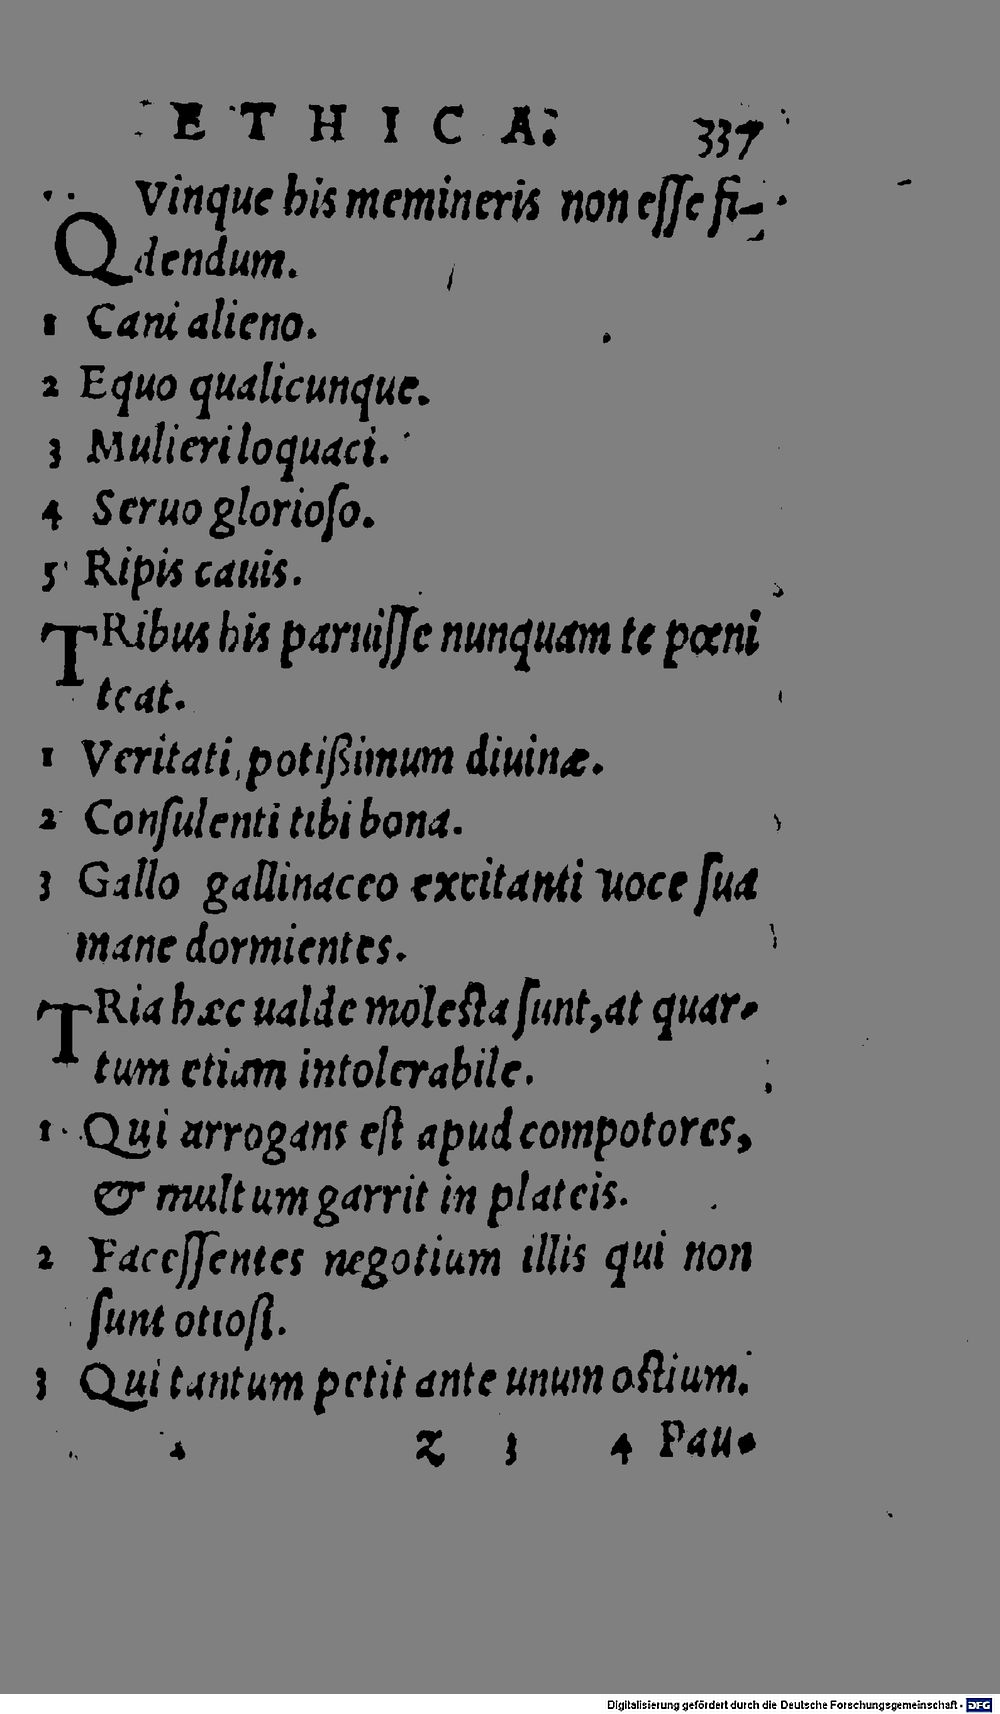 ETHICA. 337
QVinque his memineris non esse fi-
dendum.
1 Cani alieno.
2 Equo qualicunque.
3 Mulieri loquaci.
4 Seruo glorioso.
5 Ripis cauis.
TRibus his paruisse nunquam te pœni
teat.
1 Veritati, potißimum diuinæ.
2 Consulenti tibi bona.
3 Gallo gallinaceo excitanti uoce sua
mane dormientes.
TRia hæc ualde molesta sunt, at quar-
tum etiam intolerabile.
1 Qui arrogans est apud compotores,
& multum garrit in plateis.
2 Facessentes negotium illis qui non
sunt otiosi.
3 Qui tantum petit ante unum ostium.
z 3 4 Pau-
Digitalisierung gefördert durch die Deutsche Forschungsgemeinschaft - DFG